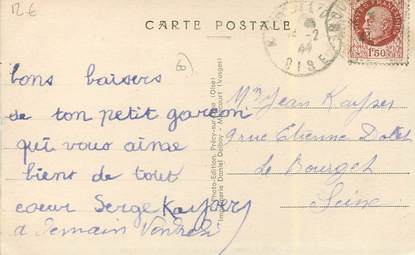 12 €
CARTE POSTALE
-2
44
OISE
POSTES FRANÇAISES
1F50
bons baisers
de ton petit garçon
qui vous aime
biens de tout
coeur Serge Kayser
a demain Vendredi
Photo-Edition, Précy-sur-Oise (Oise)
Imprimerie Daniel Delboy - Mirecourt (Vosges)
Mr Jean Kayser
9 rue Etienne Dolet
Le Bourget
Seine